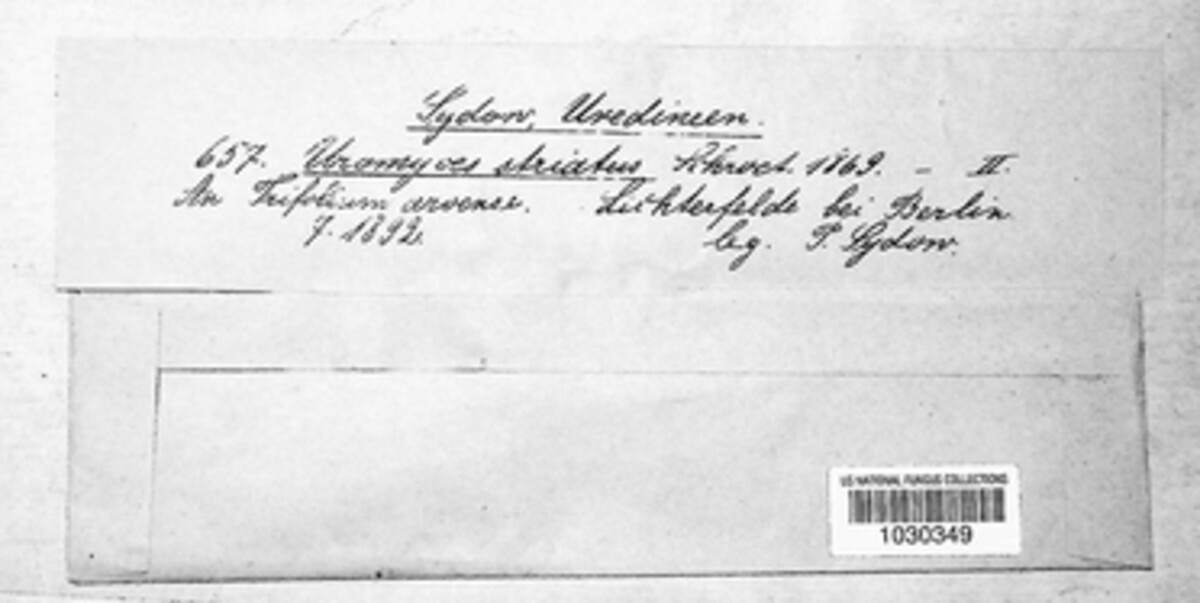 Sydow, Uredineen.
657. Uromyces striatus Schroet. 1869. – II.
An Trifolium arvense. Lichterfelde bei Berlin.
7. 1892. leg. P. Sydow.
US NATIONAL FUNGUS COLLECTIONS
1030349